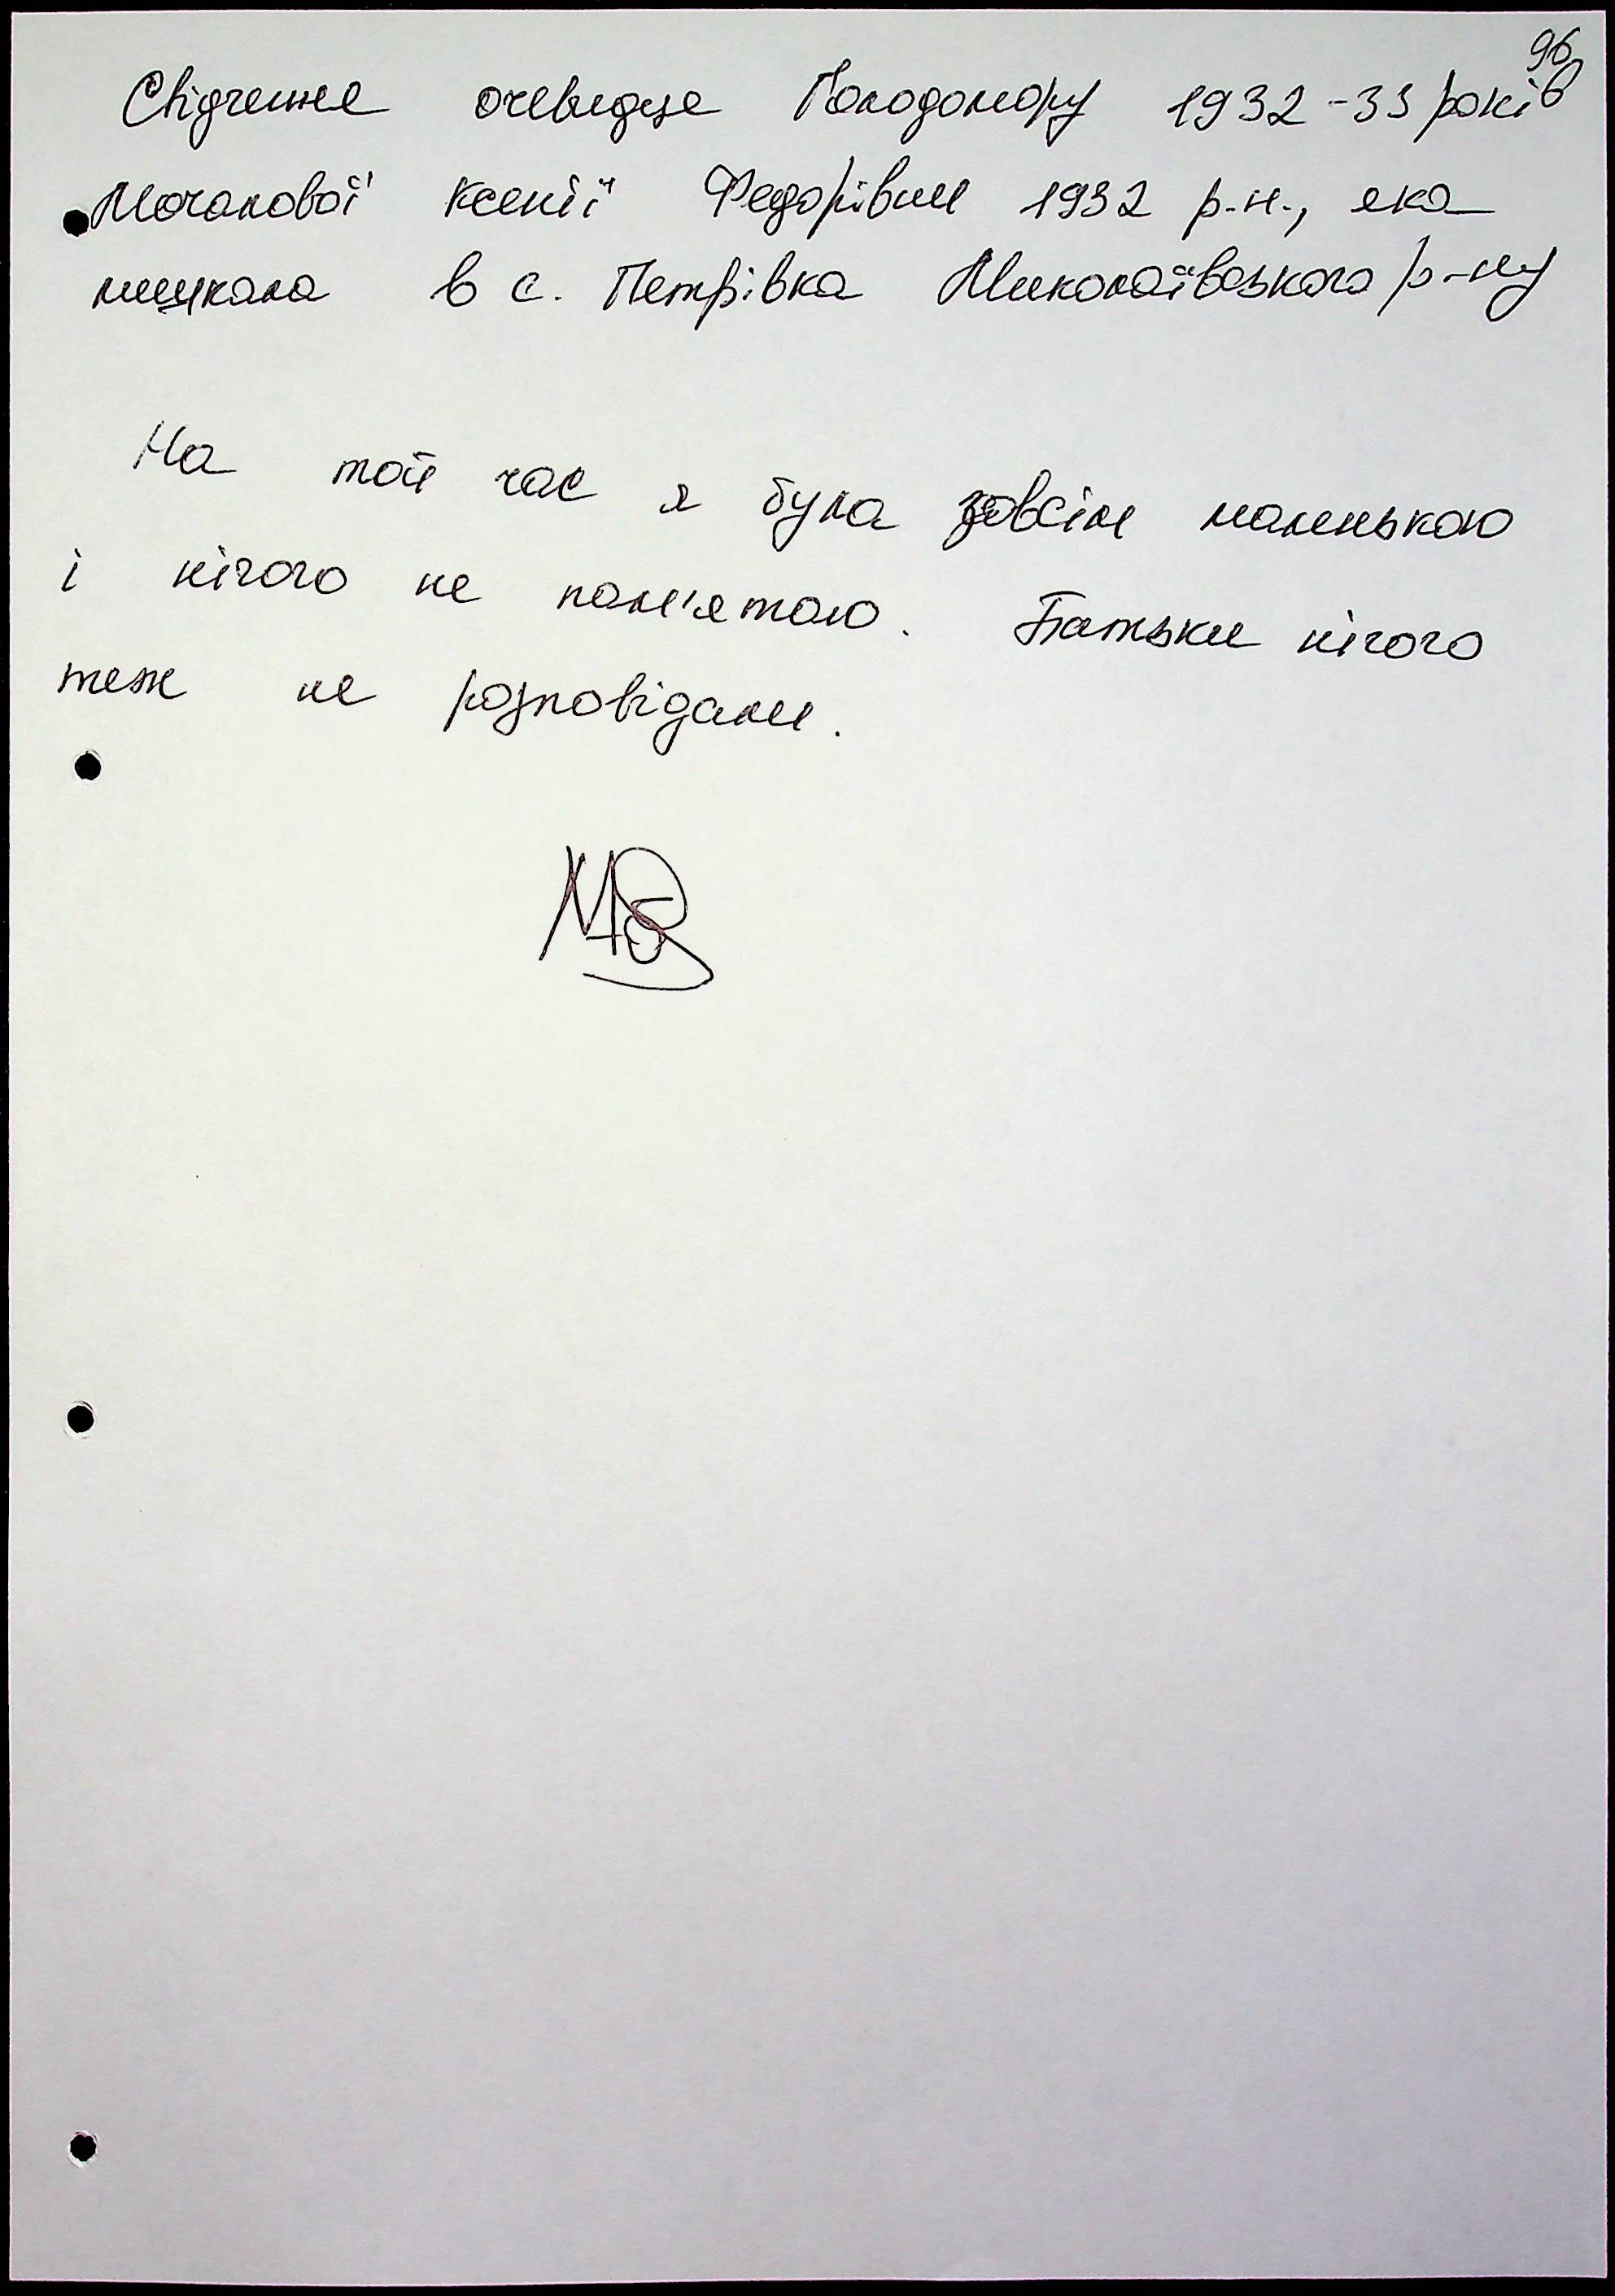 96
Свідчення очевидця Голодомору 1932-33 років
Мочалової Ксенії Федорівни 1932 р.н., яка
мешкала в с. Петрівка Миколаївського р-ну
На той час я була зовсім маленькою
і нічого не пам'ятаю. Батьки нічого
теж не розповідали.